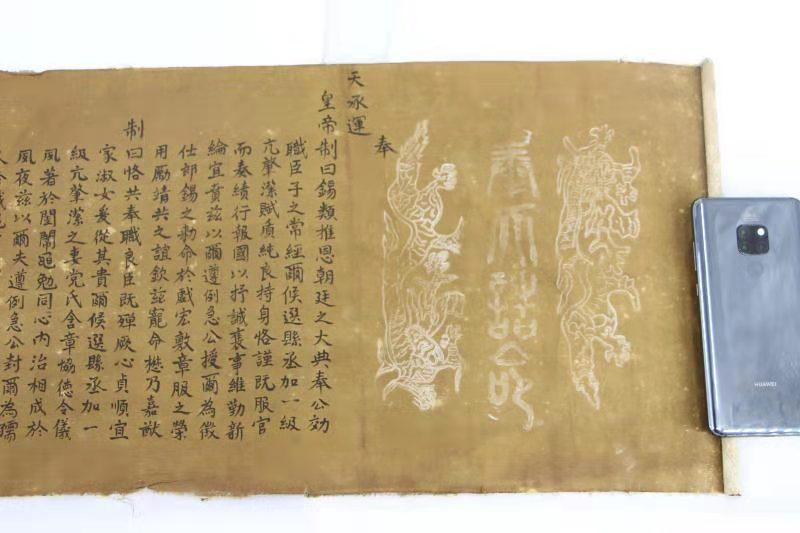 奉天誥命
奉
天承運
皇帝制曰錫類推恩朝廷之大典奉公効
職臣子之常經爾候選縣丞加一級
亢肇潔賦質純良持身恪謹既服官
而奏績行報國以抒誠襄事維勤新
綸宜賁茲以爾遵例急公授爾為徵
仕郎錫之勅命於戲宏敷章服之榮
用勵靖共之誼欽茲寵命懋乃嘉猷
制曰恪共奉職良臣既殫厥心貞順宜
家淑女爰從其貴爾候選縣丞加一
級亢肇潔之妻党氏含章協德令儀
夙著於閨闈黽勉同心內治相成於
夙夜茲以爾夫遵例急公封爾為孺
HUAWEI